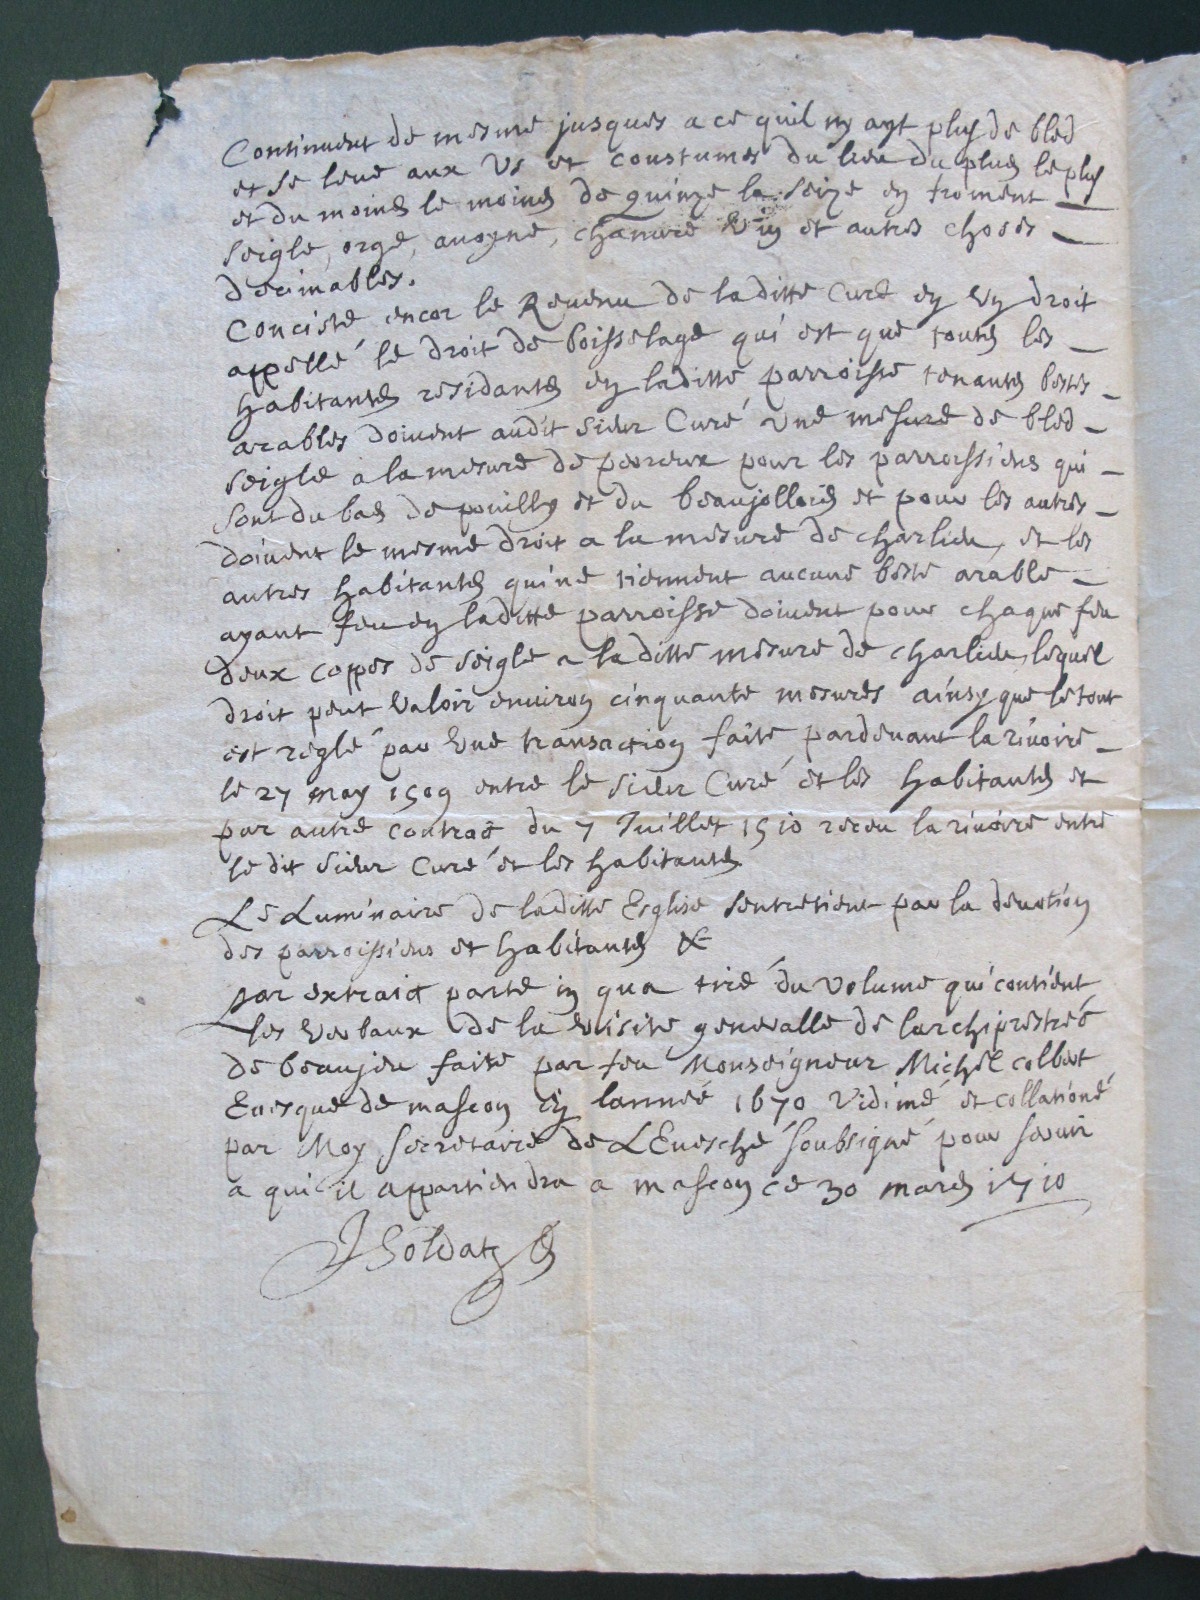 Continuent de mesme jusques a ce quil ny ayt plus de bled
et se leve aux Us et coustumes du lieu du plus le plus
et du moins le moins de quinze la seize en froment
seigle, orge, avoyne, chanvre Vin et autres choses
decimables.
Conciste encor le Revenu de laditte Cure en Un droit
appellé le droit de boisselage qui est que toutes les
habitantes residantes en laditte parroisse tenantes bestes
arables doivent audit sieur Curé une mesure de bled
seigle a la mesure de perreux pour les parroissiens qui
sont du bas de pouilly et du beaujollois et pour les autres
doivent le mesme droit a la mesure de charlieu, et les
autres habitantes qui ne tiennent aucune beste arable
ayant feu en laditte parroisse doivent pour chaque feu
deux coppes de seigle a laditte mesure de charlieu, lequel
droit peut Valoir environ cinquante mesures ainsy que le tout
est reglé par Une transaction faite pardevant la rivoire
le 27 may 1509 entre le sieur Curé et les habitantes et
par autre contract du 7 Juillet 1510 receu la rivoire entre
le dit sieur Curé et les habitantes
Le Luminaire de laditte Esglise sentretient par la devotion
des parroissiens et habitantes &
par extraict parte in qua tiré du volume qui contient
les Verbaux de la Visite generalle de larchiprestré
de beaujeu faite par feu Monseigneur Michel colbert
Evesque de mascon en lanneé 1670 Vidimé et collationé
par Moy secretaire de LEvesché soubsigné pour servir
a qui il appartiendra a mascon ce 30 mars 1710
J Soldat